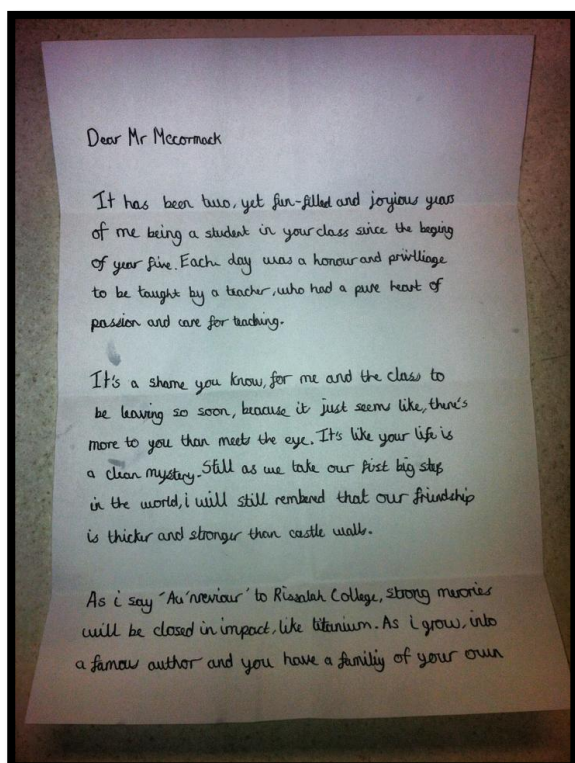 Dear Mr Mccormack
It has been two, yet fun-filled and joyious years
of me being a student in your class since the beging
of year five. Each day was a honour and privilliage
to be taught by a teacher, who had a pure heart of
passion and care for teaching.
It's a shame you know, for me and the class to
be leaving so soon, beacuse it just seems like, there's
more to you than meets the eye. It's like your life is
a clean mystery. Still as we take our first big step
in the world, i will still rembered that our friendship
is thicker and stronger than castle walls.
As i say 'Au'nreviour' to Rissalah College, strong memories
will be closed in impact, like titanium. As i grow, into
a famous author and you have a familiy of your own